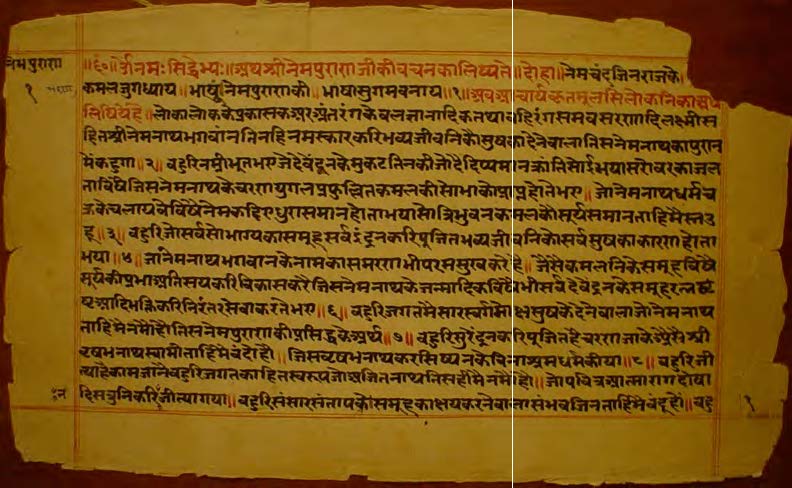 नेमपुराण
॥६०॥ ॐ नमः सिद्धेभ्यः॥ अथ श्री नेमपुराण जी की वचनका लिख्यते॥ दोहा॥ नेमचंद जिनराज के
१
कमल जुग ध्याय॥ भाषुं नेमपुराण की॥ भाषा सुगम बनाय॥१॥ अब आचार्य कृत मूल सिलोकनि का अर्थ
लिषिये है॥ लोकालोक के प्रकासक अर अंतरंग केवल ज्ञानादिक तथा बहिरंग समवसरणादि लक्ष्मी स
हित श्री नेमनाथ भगवान तिनहि नमस्कार करि भव्य जीवनि कौ सुष का देने वाला तिस नेमनाथ का पुरान
मै कहूगा॥२॥ बहुरि नम्रीभूत भए जे देवेंद्र तिनके मुकट तिनकी जो देदिप्यमान क्रांति सोई भया सरोवर का जल
ता विषै जिस नेमनाथ के चरण युगल प्रफुल्लित कमल की सोभा को प्राप्त होते भए॥ जो नेमनाथ धर्म च
क्र के चलायवे विषै नेम कहिए धुरा समान होता भया सो त्रिभुवन कमल कौ सूर्य समान ताहि मै स्तउ
हू॥३॥ बहुरि जो सर्व सोभाग्य का समूह सर्व इंद्रन करि पूजित भव्य जीवनि को सर्व सुष का कारण होता
भया॥४॥ जा नेमनाथ भगवान के नाम का समरण भी परम सुख करे है॥ जैसे कमलनि के समूह विषै
सूर्य की प्रभा अतिसय करि विकास करै जिस नेमनाथ के जन्मादिक विषै भी सर्व देवेंद्रन के समूह रत्न
आदि भक्ति करि निरंतर सेवा करते भए॥६॥ बहुरि जगत मै सार स्वर्ग मोक्ष सुष के देने वाला जो नेमनाथ
ताहि मै नमौ हौ तिस नेमपुराण की प्रसिद्ध के अर्थ॥७॥ बहुरि सुरेंद्रन करि पूजित है चरण जाके ऐसे श्री
ऋषभनाथ स्वामी ताहि मै बंदो हौ॥ जिस ऋषभनाथ कर सिष्यन के बिना श्रम धर्म कीया॥८॥ बहुरि जी
त्या है काम जाने बहुरि जगत का हित स्वरूप जो अजितनाथ तिसहि मै नमौ हौ॥ जो पवित्र आत्मा राग दोषा
दि सत्रुनि करि जीत्या गया॥ बहुरि संसार संताप को समूह का क्षय करने वाला संभव जिन ताहि मै बंदू हौ॥ बहु
१